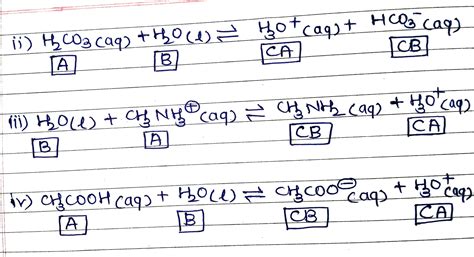 ii) H₂CO₃(aq) + H₂O(l) ⇌ H₃O⁺(aq) + HCO₃⁻(aq)
A B CA CB
iii) H₂O(l) + CH₃NH₃⊕(aq) ⇌ CH₃NH₂(aq) + H₃O⁺(aq)
B A CB CA
iv) CH₃COOH(aq) + H₂O(l) ⇌ CH₃COO⊖(aq) + H₃O⁺(aq)
A B CB CA